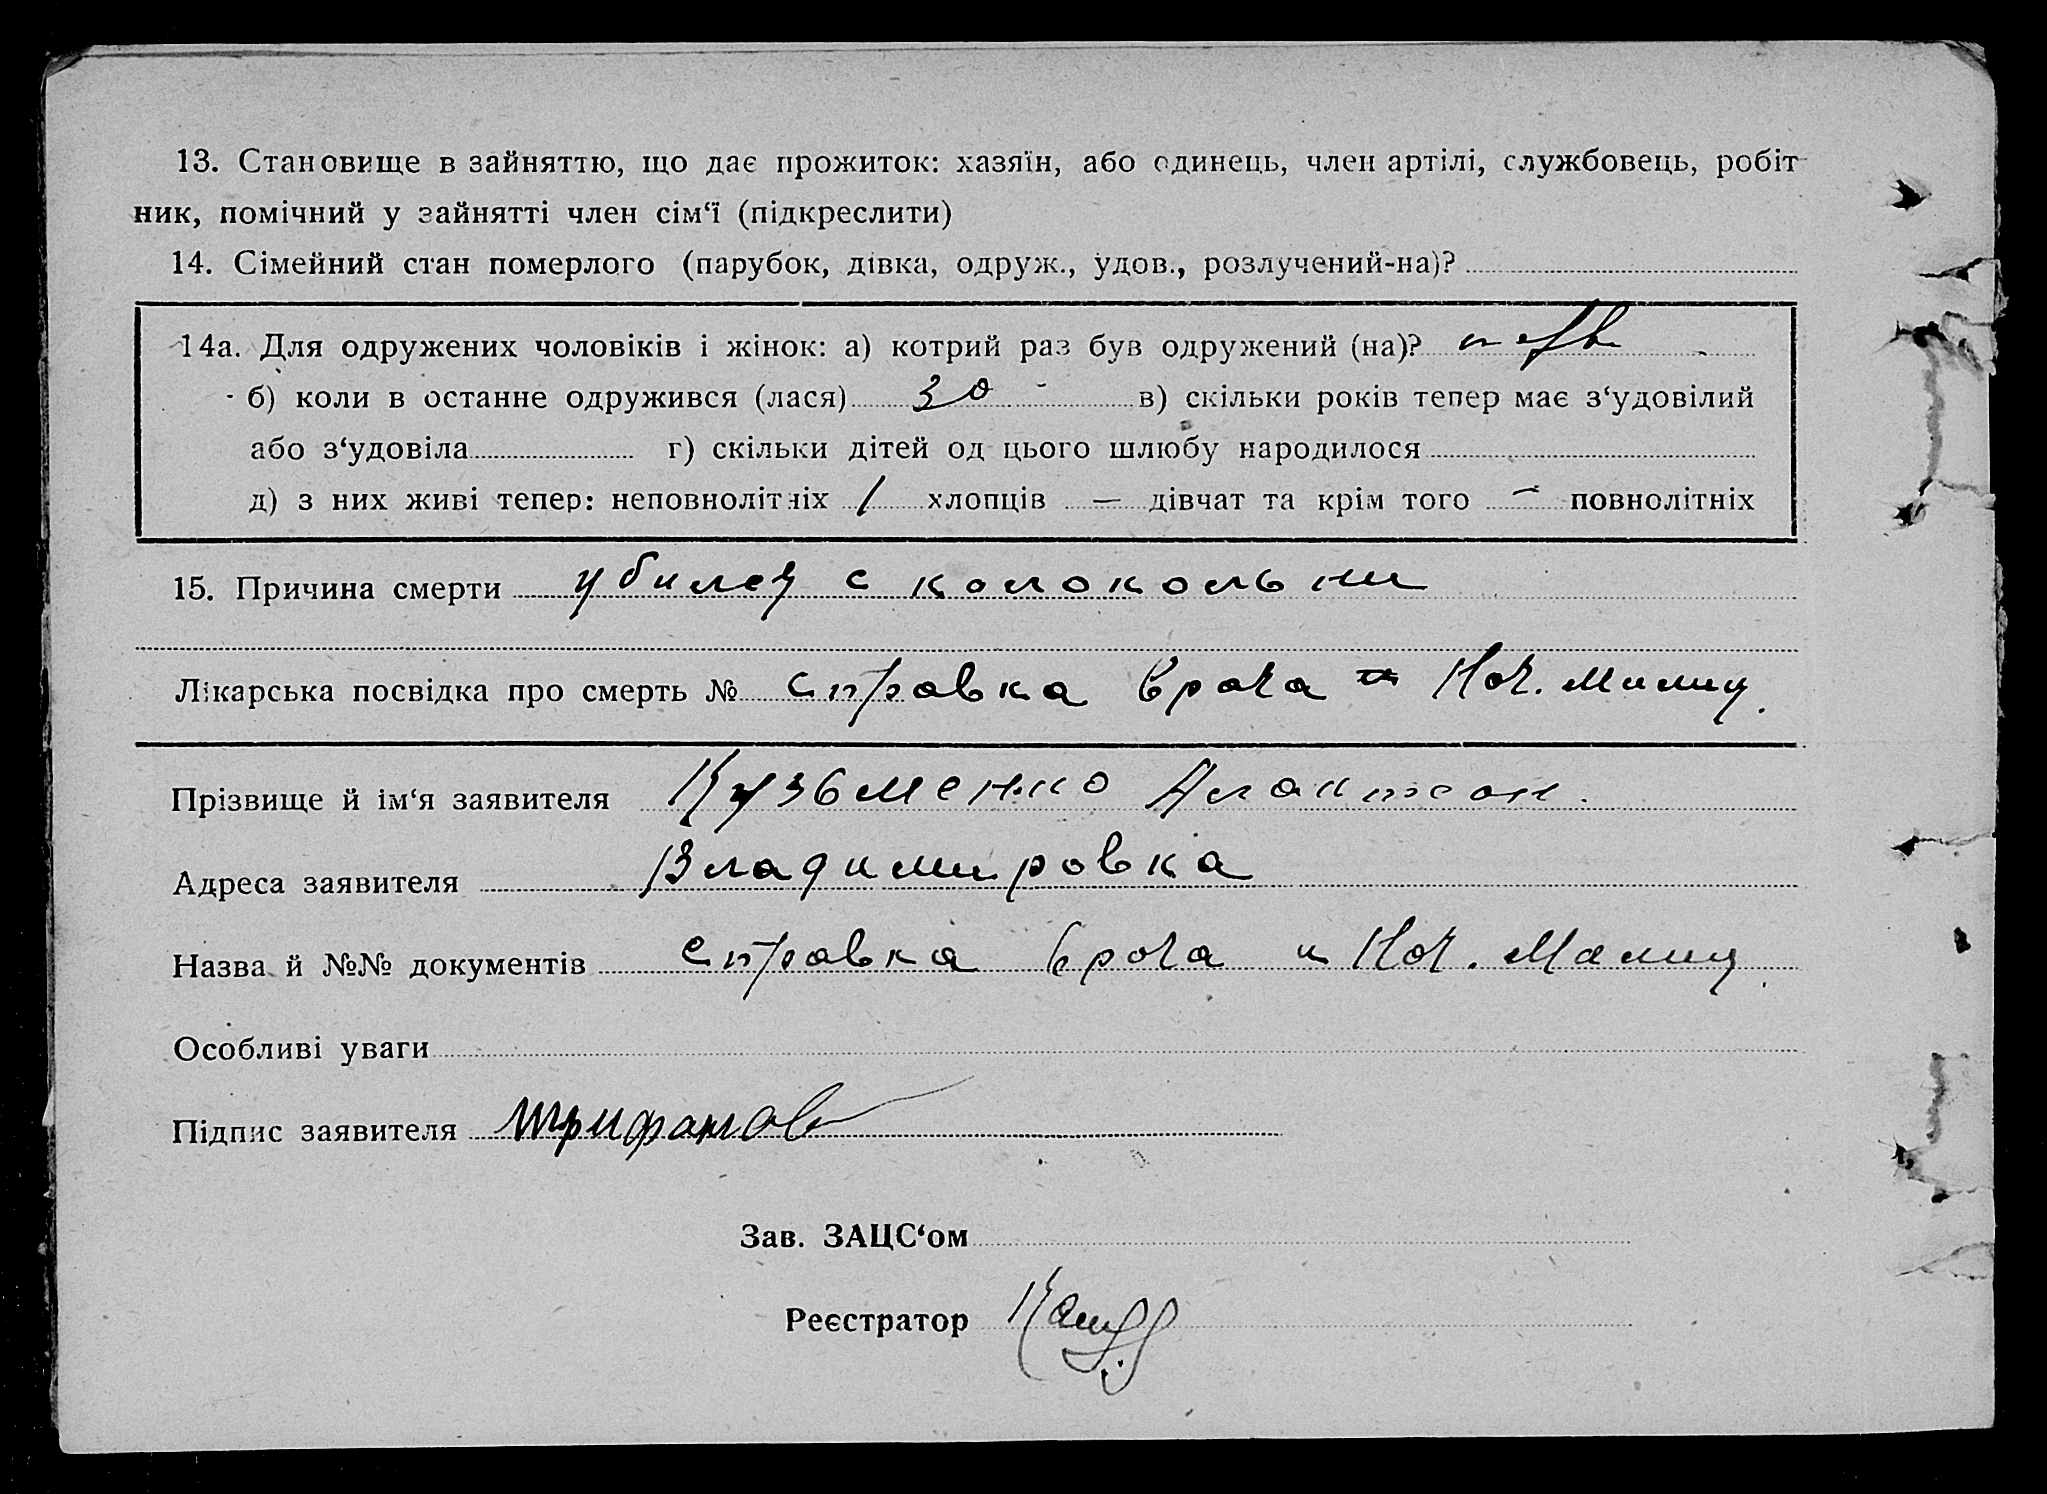 13. Становище в зайняттю, що дає прожиток: хазяїн, або одинець, член артілі, службовець, робіт-
ник, помічний у зайнятті член сім‘ї (підкреслити)
14. Сімейний стан померлого (парубок, дівка, одруж., удов., розлучений-на)?
14а. Для одружених чоловіків і жінок: а) котрий раз був одружений (на)? перв
б) коли в останне одружився (лася) 30 в) скільки років тепер має з‘удовілий
або з‘удовіла г) скільки дітей од цього шлюбу народилося
д) з них живі тепер: неповнолітніх / хлопців — дівчат та крім того — повнолітніх
15. Причина смерти с колокольни
Лікарська посвідка про смерть № справка врача и Нач. Милиц.
Прізвище й ім‘я заявителя Кузьменко
Адреса заявителя Владимировка
Назва й №№ документів справка врача и Нач. Милиц.
Особливі уваги
Підпис заявителя
Зав. ЗАЦС‘ом
Реєстратор